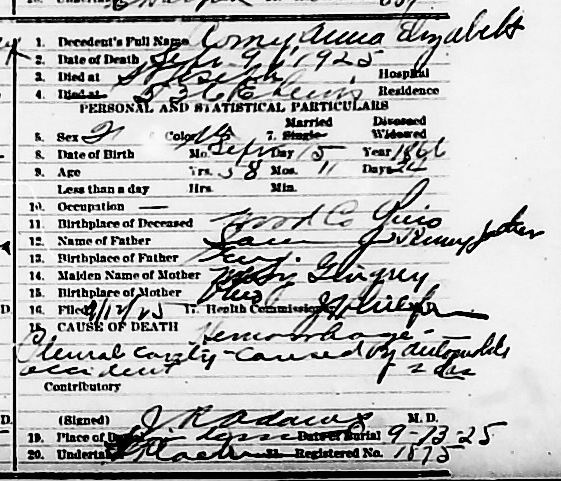 1. Decedent's Full Name Anna Elizabeth
2. Date of Death Sept 9, 1925
3. Died at St Joseph Hospital
4. Died at 536 E Lewis Residence
PERSONAL AND STATISTICAL PARTICULARS
5. Sex F Color W 7. Single Married Divorced Widowed
8. Date of Birth Mo. Sept Day 15 Year 1866
9. Age Yrs. 58 Mos. 11 Days 24
Less than a day Hrs. Min.
10. Occupation —
11. Birthplace of Deceased Wood Co Ohio
12. Name of Father
13. Birthplace of Father
14. Maiden Name of Mother
15. Birthplace of Mother Ohio
16. Filed 9/12/25 17. Health Commissioner
18. CAUSE OF DEATH Hemorrhage —
Pleural cavity - caused by automobile
accident 2 das
Contributory
(Signed) J. R. Adams M. D.
19. Place of Burial Date of Burial 9-13-25
20. Undertaker 21. Registered No. 1875